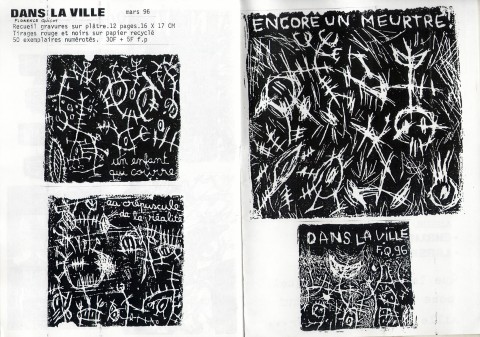 DANS LA VILLE mars 96
FLORENCE
Recueil gravures sur plâtre.12 pages.16 X 17 CM
Tirages rouge et noirs sur papier recyclé
50 exemplaires numérotés. 30F + 5F f.p
un enfant
qui
au crépuscule
de la réalité
ENCORE UN MEURTRE!
DANS LA VILLE
F.Q.96